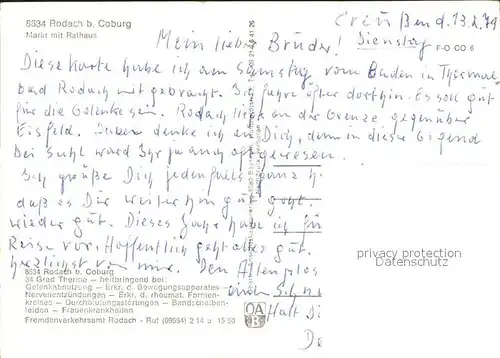 8634 Rodach b. Coburg
Markt mit Rathaus
Creußen d. 13.2.79
Dienstag
Mein lieber Bruder!
F-O CO 6
Diese Karte habe ich am Samstag vom Baden in Thermal-
bad Rodach mitgebracht. Ich fahre öfter dorthin. Es soll gut
für die Gelenke sein. Rodach liegt an der Grenze gegenüber
Eisfeld. Dabei denke ich an Dich, denn in dieser Gegend
bei Suhl ward Ihr ja auch oft gewesen.
Ich grüße Dich jedenfalls ganz h
daß es Dir weiterhin gut geht.
wieder gut. Dieses Jahr habe ich für
Reise vor. Hoffentlich geht alles gut.
herzlichst von mir. Den
8634 Rodach b. Coburg
34 Grad Therme – heilbringend bei:
Gelenkabnutzung – Erkr. d. Bewegungsapparates –
Nervenentzündungen – Erkr. d. rheumat. Formen-
kreises – Durchblutungsstörungen – Bandscheiben-
leiden – Frauenkrankheiten
Fremdenverkehrsamt Rodach - Ruf (09564) 2 14 u. 15 50
OA
B
Halt Di
De
privacy protection
privacy protection